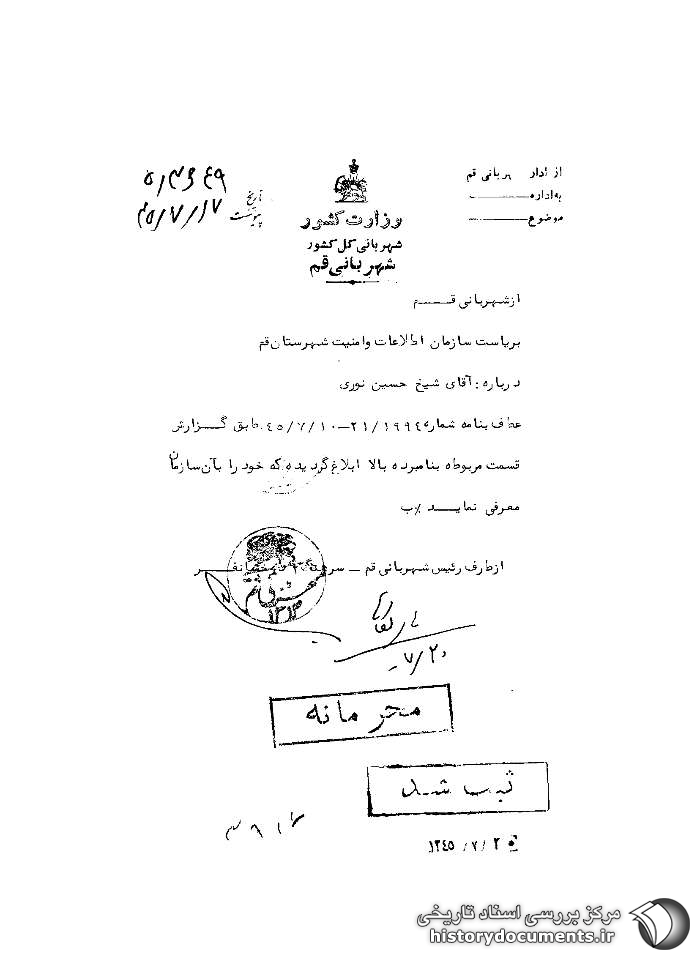 از اداره شهربانی قم
به اداره
موضوع
تاریخ ۴۵/۷/۱۷
پیوست
وزارت کشور
شهربانی کل کشور
شهربانی قم
از شهربانی قـــم
بریاست سازمان اطلاعات وامنیت شهرستان قم
درباره : آقای شیخ حسین نوری
عطف بنامه شماره ۲۱/۱۹۹۴۷-۴۵/۷/۱۰ طبق گـــزارش
قسمت مربوطه بنامبرده بالا ابلاغ گردیده که خود را بآن سازمان
معرفی نمایـــد %ب
از طرف رئیس شهربانی قم – سرهنگ
۱۳۱۳
۷/۲۰
محرمانه
ثبت شد
۱۳۴۵/۷/۲
مرکز بررسی اسناد تاریخی
historydocuments.ir